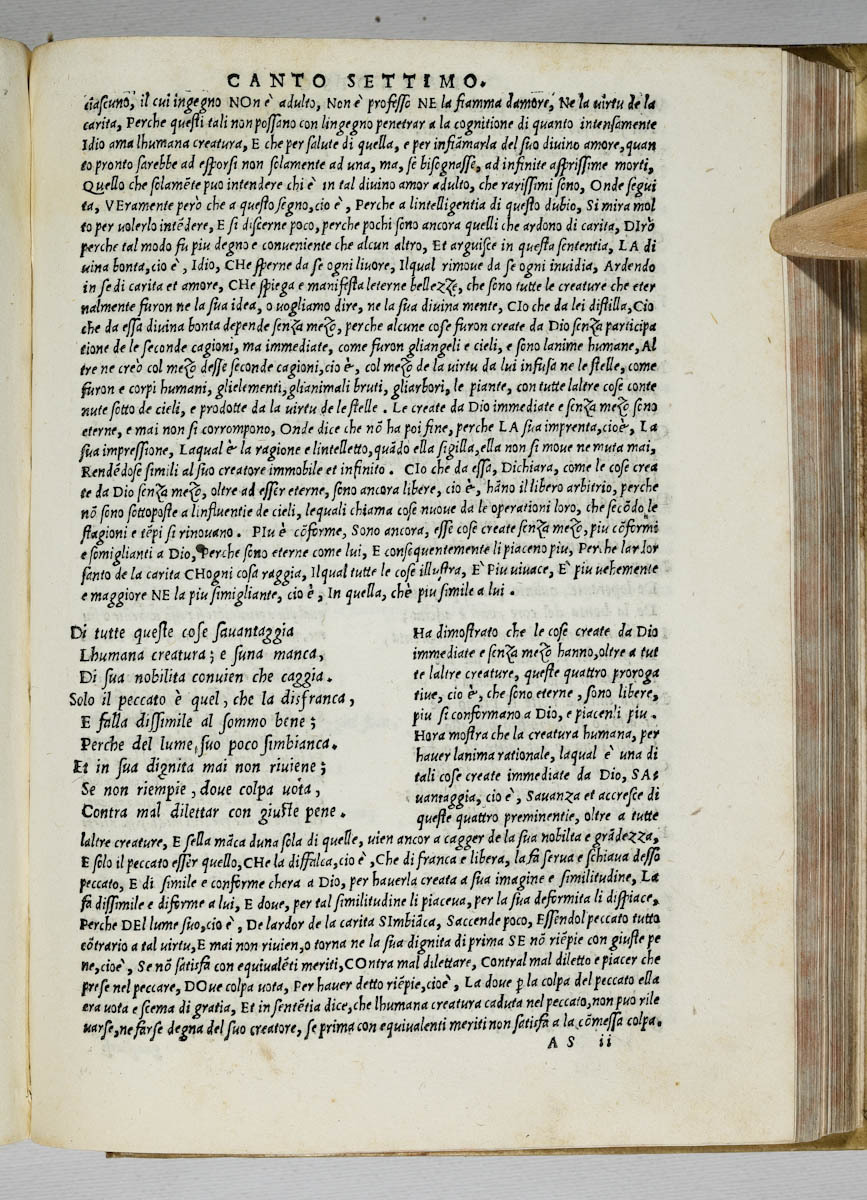 CANTO SETTIMO.
ciascuno, il cui ingegno NOn è adulto, Non è professo NE la fiamma damore, Ne la uirtu de la
carita, Perche questi tali non possano con lingegno penetrar a la cognitione di quanto intensamente
Idio ama lhumana creatura, E che per salute di quella, e per infiãmarla del suo diuino amore, quan
to pronto sarebbe ad esporsi non solamente ad una, ma, se bisegnasse, ad infinite asprissime morti,
Quello che solamẽte puo intendere chi è in tal diuino amor adulto, che rarissimi sono, Onde segui
ta, VEramente però che a questo segno, cio è, Perche a lintelligentia di questo dubio, Si mira mol
to per uolerlo intẽdere, E si discerne poco, perche pochi sono ancora quelli che ardono di carita, DIrò
perche tal modo fu piu degno e conueniente che alcun altro, Et arguisce in questa sententia, LA di
uina bonta, cio è, Idio, CHe sperne da se ogni liuore, Ilqual rimoue da se ogni inuidia, Ardendo
in se di carita et amore, CHe spiega e manifesta leterne bellezze, che sono tutte le creature che eter
nalmente furon ne la sua idea, o uogliamo dire, ne la sua diuina mente, CIo che da lei distilla, Cio
che da essa diuina bonta depende senza mezo, perche alcune cose furon create da Dio senza participa
tione de le seconde cagioni, ma immediate, come furon gliangeli e cieli, e sono lanime humane, Al
tre ne creò col mezo desse seconde cagioni, cio è, col mezo de la uirtu da lui infusa ne le stelle, come
furon e corpi humani, glielementi, glianimali bruti, gliarbori, le piante, con tutte laltre cose conte
nute sotto de cieli, e prodotte da la uirtu de le stelle. Le create da Dio immediate e senza mezo sono
eterne, e mai non si corrompono, Onde dice che nõ ha poi fine, perche LA sua imprenta, cioè, La
sua impressione, Laqual è la ragione e lintelletto, quãdo ella sigilla, ella non si moue ne muta mai,
Rendẽdose simili al suo creatore immobile et infinito. CIo che da essa, Dichiara, come le cose crea
te da Dio senza mezo, oltre ad esser eterne, sono ancora libere, cio è, hãno il libero arbitrio, perche
nõ sono sottoposte a linfluentie de cieli, lequali chiama cose nuoue da le operationi loro, che secõdo le
stagioni e tẽpi si rinouano. PIu è cõforme, Sono ancora, esse cose create senza mezo, piu cõformi
e somiglianti a Dio, Perche sono eterne come lui, E consequentemente li piaceno piu, Perche lardor
santo de la carita CHogni cosa raggia, Ilqual tutte le cose illustra, E' Piu uiuace, E' piu uehemente
e maggiore NE la piu simigliante, cio è, In quella, chè piu simile a lui.
Di tutte queste cose sauantaggia
Lhumana creatura; e suna manca,
Di sua nobilita conuien che caggia.
Solo il peccato è quel, che la disfranca,
E falla dissimile al sommo bene;
Perche del lume suo poco simbianca.
Et in sua dignita mai non riuiene;
Se non riempie, doue colpa uota,
Contra mal dilettar con giuste pene.
Ha dimostrato che le cose create da Dio
immediate e senza mezo hanno, oltre a tut
te laltre creature, queste quattro proroga
tiue, cio è, che sono eterne, sono libere,
piu si conformano a Dio, e piacenli piu.
Hora mostra che la creatura humana, per
hauer lanima rationale, laqual è una di
tali cose create immediate da Dio, SA-
uantaggia, cio è, Sauanza et accresce di
queste quattro preminentie, oltre a tutte
laltre creature, E sella mãca duna sola di quelle, uien ancor a cagger de la sua nobilta e grãdezza,
E solo il peccato esser quello, CHe la diffalca, cio è, Che di franca e libera, la fa serua e schiaua desso
peccato, E di simile e conforme chera a Dio, per hauerla creata a sua imagine e similitudine, La
fa dissimile e diforme a lui, E doue, per tal similitudine li piaceua, per la sua deformita li dispiace,
Perche DEl lume suo, cio è, De lardor de la carita SImbiãca, Saccende poco, Essendol peccato tutto
cõtrario a tal uirtu, E mai non riuien, o torna ne la sua dignita di prima SE nõ riẽpie con giuste pe
ne, cioè, Se nõ satisfa con equiualẽti meriti, COntra mal dilettare, Contral mal diletto e piacer che
prese nel peccare, DOue colpa uota, Per hauer detto riẽpie, cioè, La doue p la colpa del peccato ella
era uota e scema di gratia, Et in sentẽtia dice, che lhumana creatura caduta nel peccato, non puo rile
uarse, ne farse degna del suo creatore, se prima con equiualenti meriti non satisfa a la cõmessa colpa.
AS ii